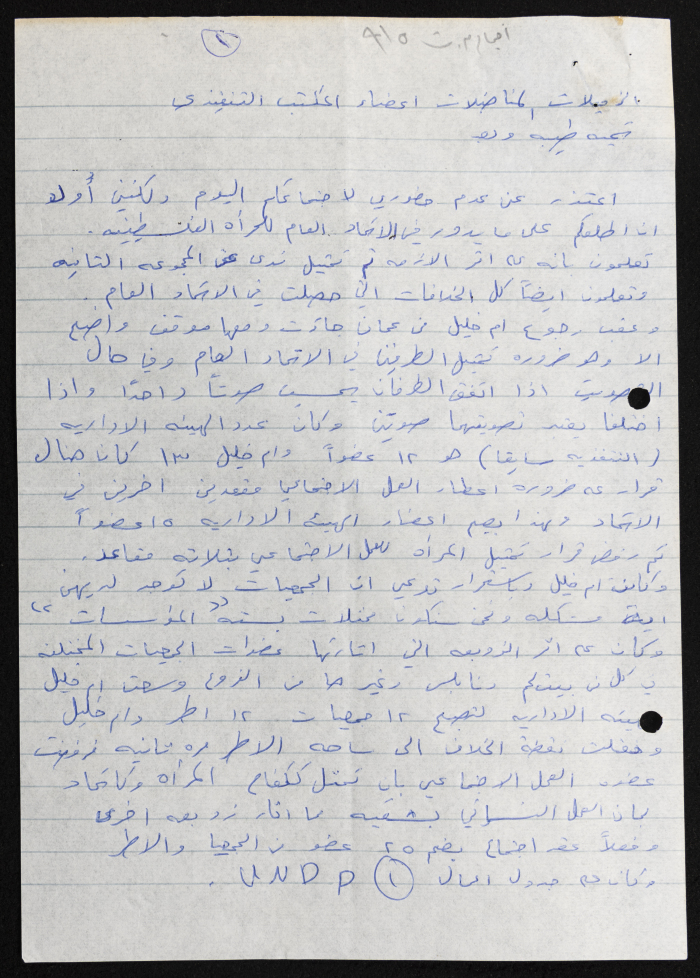 ١
الزميلات المناضلات اعضاء المكتب التنفيذي
تحيه طيبه وبعد
اعتذر عن عدم حضوري لاجتماعكم اليوم ولكنني أود
ان اطلعكم على ما يدور في الاتحاد العام للمرأه الفلسطينيه .
تعلمون بانه على اثر الازمه تم تمثيل ندى عن المجموعه الثانيه
وتعلمون ايضاً كل الخلافات التي حصلت في الاتحاد العام .
وعقب رجوع ام خليل من عمان جاءت ومعها موقف واضح
الا وهو ضروره تمثيل الطرفين في الاتحاد العام وفي حال
التصويت اذا اتفق الطرفان يحسب صوتاً واحداً واذا
اختلفا يعتبر تصويتهما صوتين وكان عدد الهيئه الاداريه
( التنفذيه سابقا ) هو ١٢ عضواً وام خليل ١٣ كان هنال
قرار على ضروره اعطاء العمل الاجتماعي مقعدين اخرين في
الاتحاد وبهذا يصبح اعضاء الهيئه الاداريه ١٥ عضواً
تم رفض قرار تمثيل المرأه للعمل الاجتماعي بثلاثه مقاعد .
وكانت ام خليل وباستمرار تدعي ان الجمعيات لا توجد لديهن
مشكله ونحن سنكون ممثلات بسته " المؤسسات "
وكان على اثر الزوبعه التي اثارتها عضوات الجمعيات المختلفه
في كل من بيت لحم ونابلس وغيرها من الفروع وسعت ام خليل
هيئه الاداريه لتصبح ١٢ جمعيات ١٢ اطر وام خليل
ونقلت نقطة الخلاف الى ساحه الاطر مره ثانيه فرفضت
عضوه العمل الاجتماعي بان تمثل ككفاح المرأه وكاتحاد
لجان العمل النسائي بشقيه مما اثار زوبعه اخرى
وفعلاً عقد اجتماع يضم ٢٥ عضو من الجمعيات والاطر
وكان على جدول اعمال ١